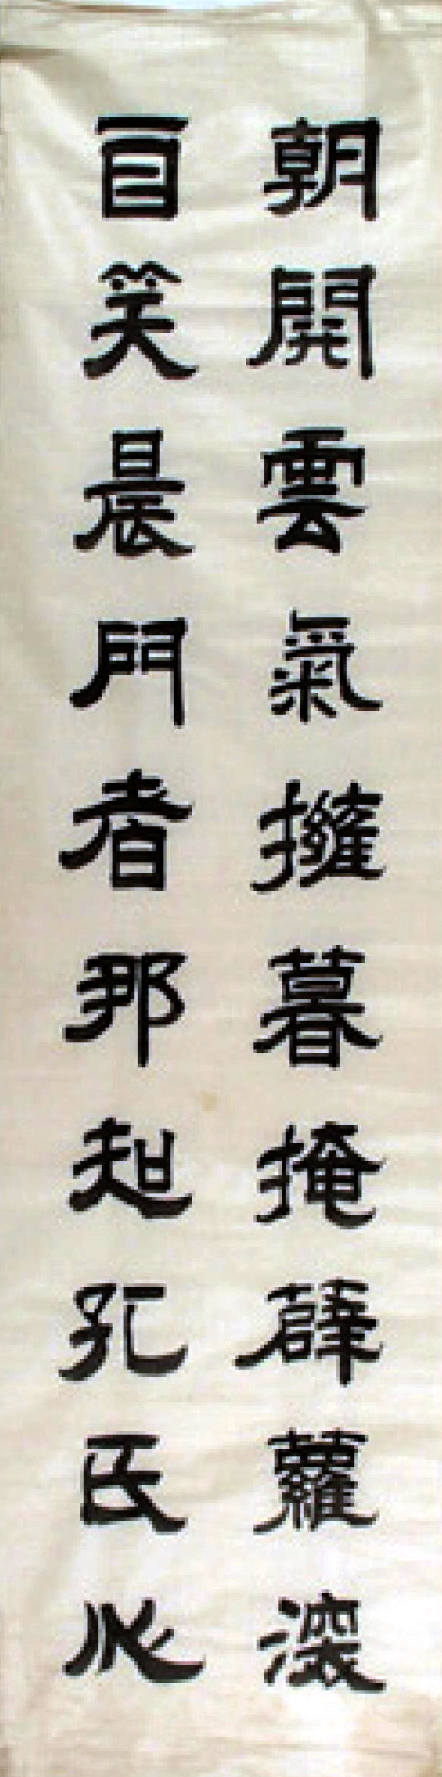 朝開雲氣擁暮掩薜蘿深
自笑晨門者那知孔氏心